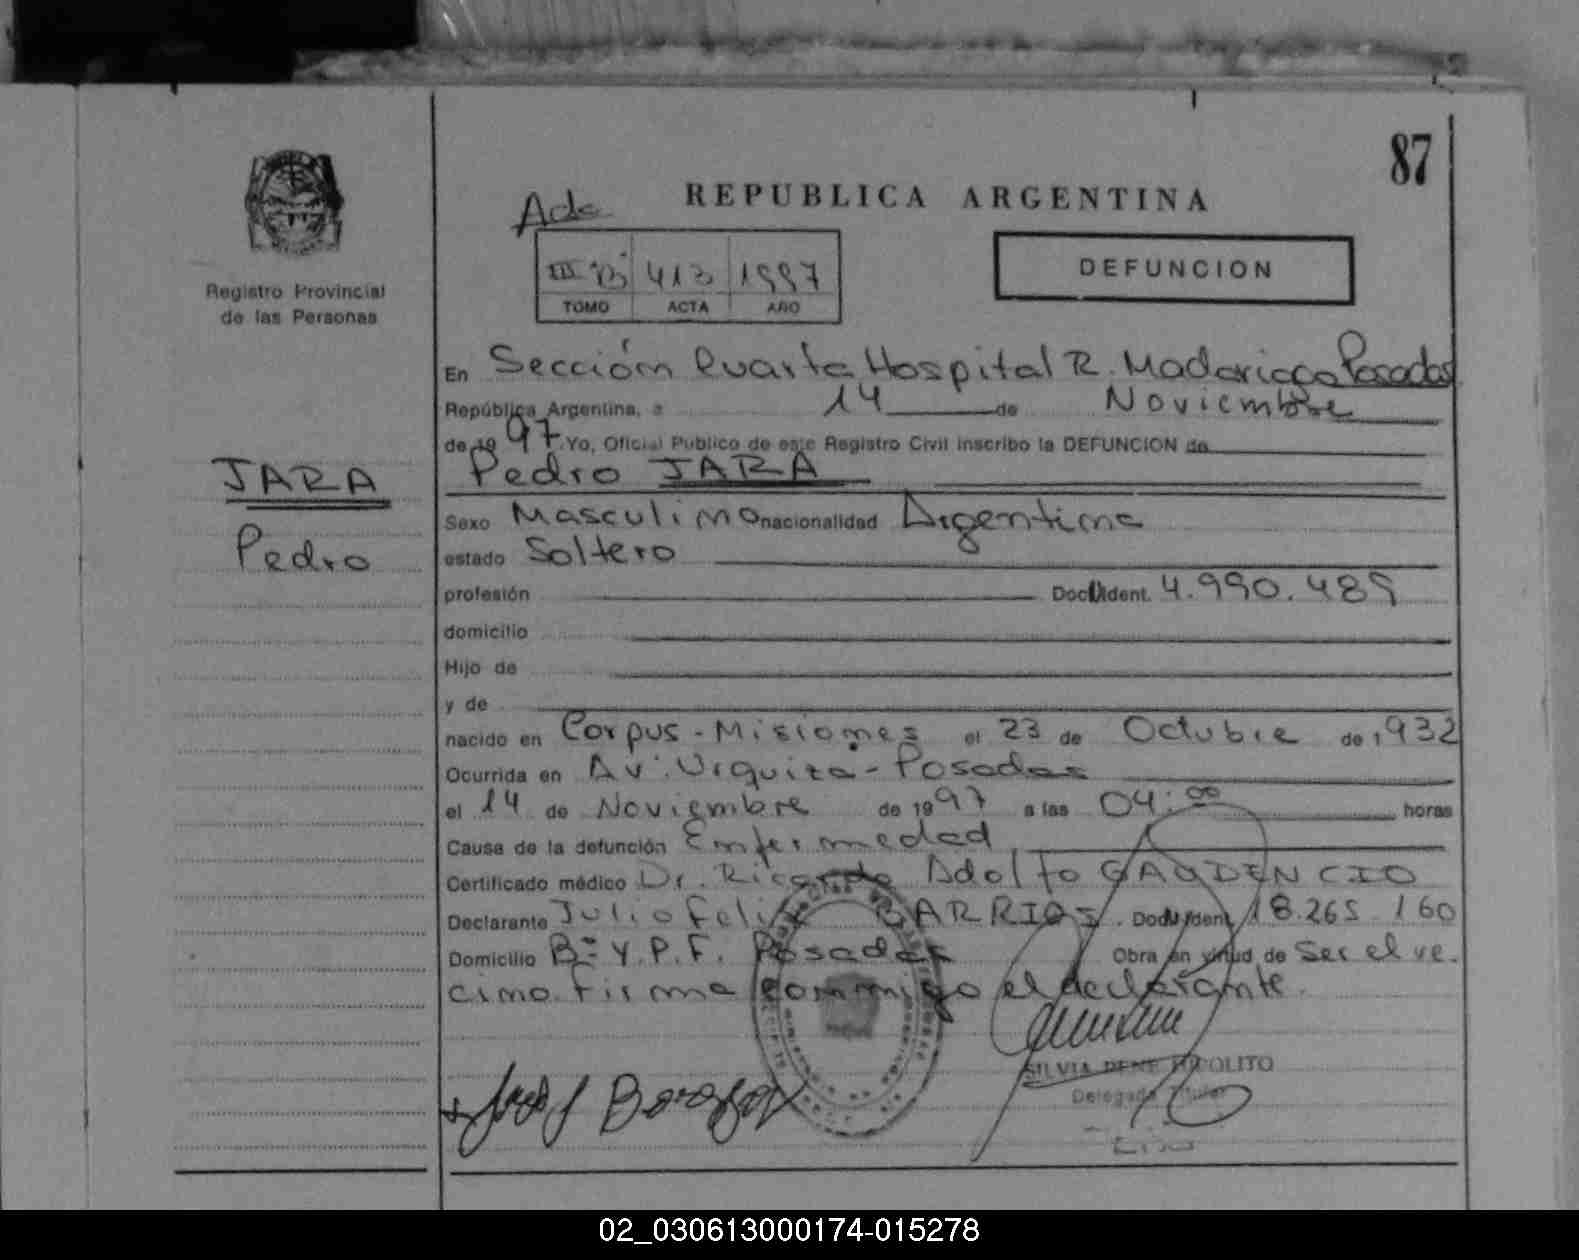 87
REPUBLICA ARGENTINA
DEFUNCION
III "B" 413 1997
TOMO ACTA AÑO
Registro Provincial
de las Personas
JARA
Pedro
En Sección Cuarta Hospital R. Madariaga Posadas
República Argentina, a 14 de Noviembre
de 19 97 Yo, Oficial Publico de este Registro Civil inscribo la DEFUNCION de
Pedro JARA
Sexo Masculino nacionalidad Argentina
estado Soltero
profesión Doc. Ident. 4.990.489
domicilio
Hijo de
y de
nacido en Corpus - Misiones el 23 de Octubre de 1932
Ocurrida en Av. Urquiza - Posadas
el 14 de Noviembre de 1997 a las 04:00 horas
Causa de la defunción Enfermedad
Certificado médico Dr. Ricardo Adolfo GAUDENCIO
Declarante Julio Felix BARRIOS. Doc. Ident. 18.265.160
Domicilio Bº Y.P.F. Posadas Obra en virtud de Ser el ve-
cino. Firma conmigo el declarante.
SILVIA RENE HIPOLITO
Delegada Titular
02_030613000174-015278